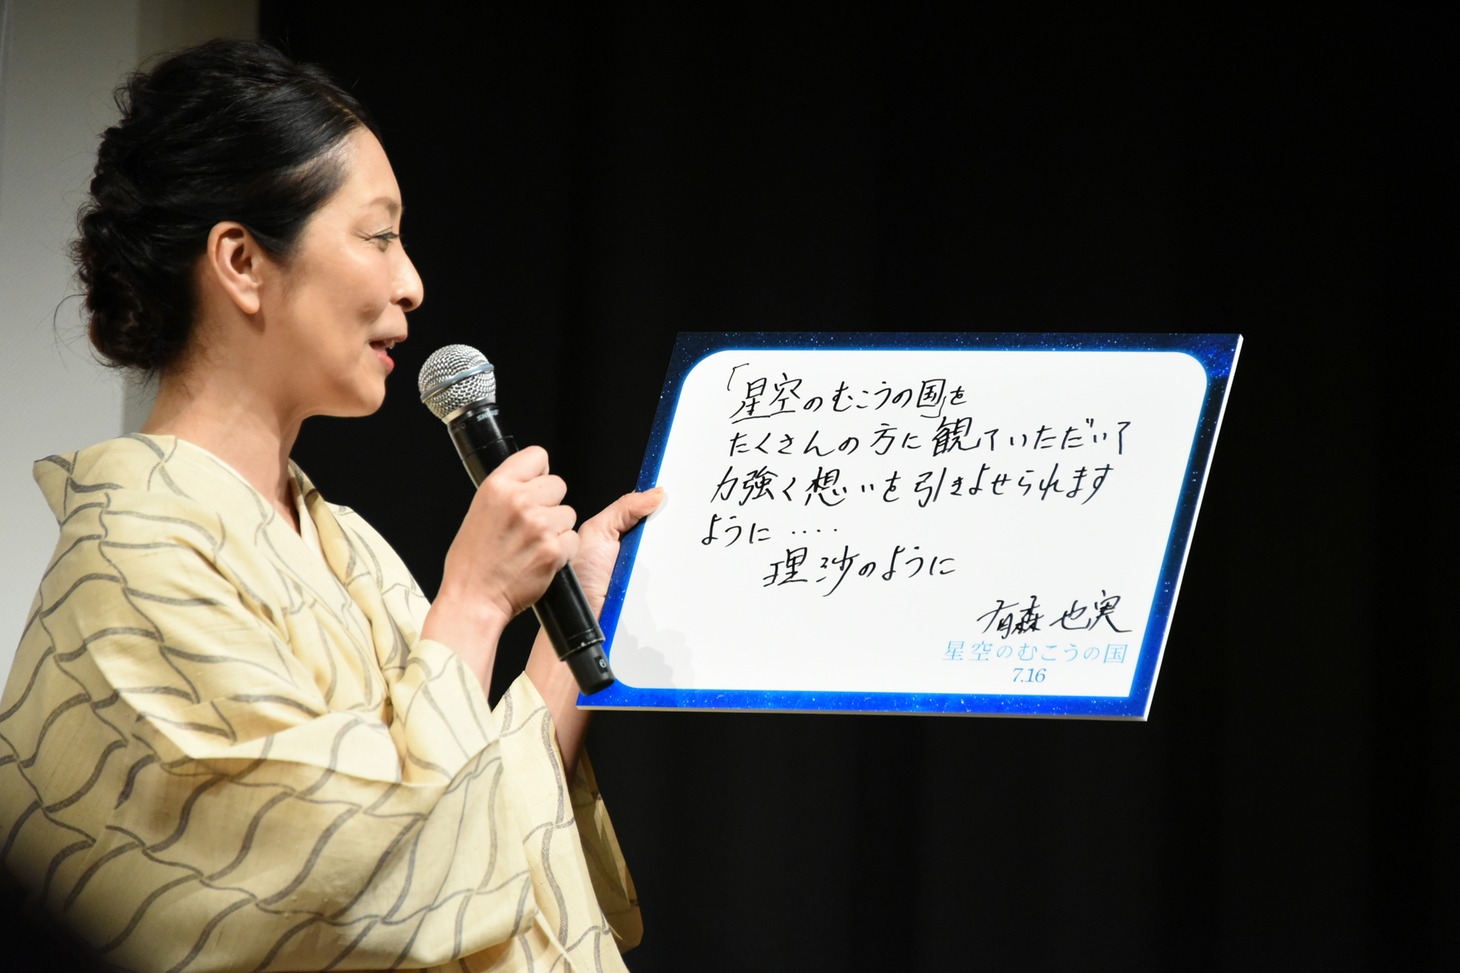 「星空のむこうの国」を
たくさんの方に観ていただいて
力強く想いを引きよせられます
ように ‥‥
理沙のように
有森也実
星空のむこうの国
7.16